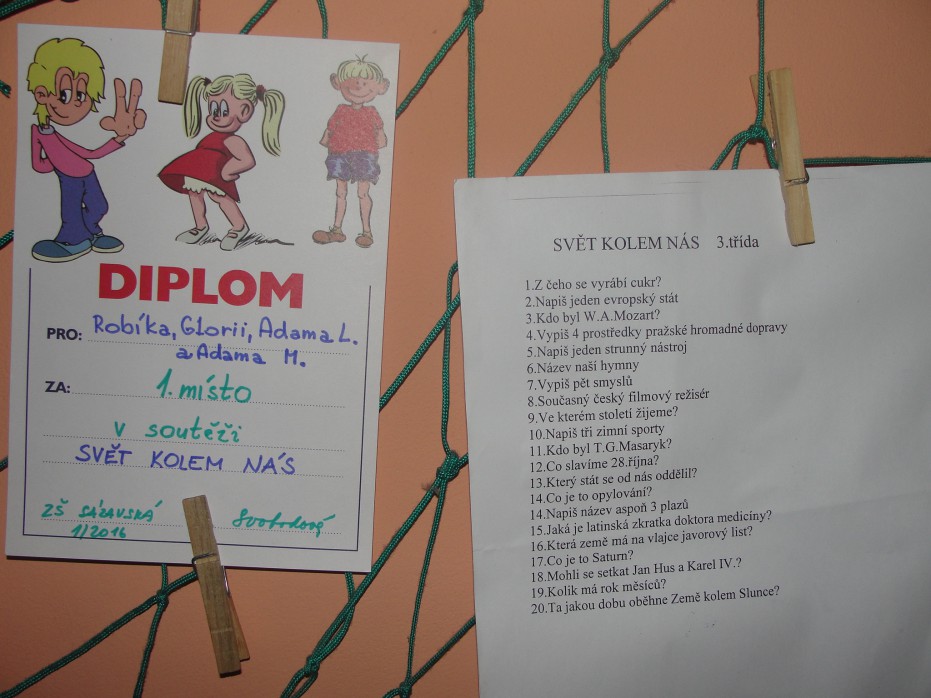 DIPLOM
PRO: Robíka, Glorii, Adama L.
a Adama M.
ZA: 1. místo
v soutěži
SVĚT KOLEM NÁS
ZŠ SÁZAVSKÁ
1/2016
Svobodová
SVĚT KOLEM NÁS 3.třída
1.Z čeho se vyrábí cukr?
2.Napiš jeden evropský stát
3.Kdo byl W.A.Mozart?
4.Vypiš 4 prostředky pražské hromadné dopravy
5.Napiš jeden strunný nástroj
6.Název naší hymny
7.Vypiš pět smyslů
8.Současný český filmový režisér
9.Ve kterém století žijeme?
10.Napiš tři zimní sporty
11.Kdo byl T.G.Masaryk?
12.Co slavíme 28.října?
13.Který stát se od nás oddělil?
14.Co je to opylování?
14.Napiš název aspoň 3 plazů
15.Jaká je latinská zkratka doktora medicíny?
16.Která země má na vlajce javorový list?
17.Co je to Saturn?
18.Mohli se setkat Jan Hus a Karel IV.?
19.Kolik má rok měsíců?
20.Ta jakou dobu oběhne Země kolem Slunce?